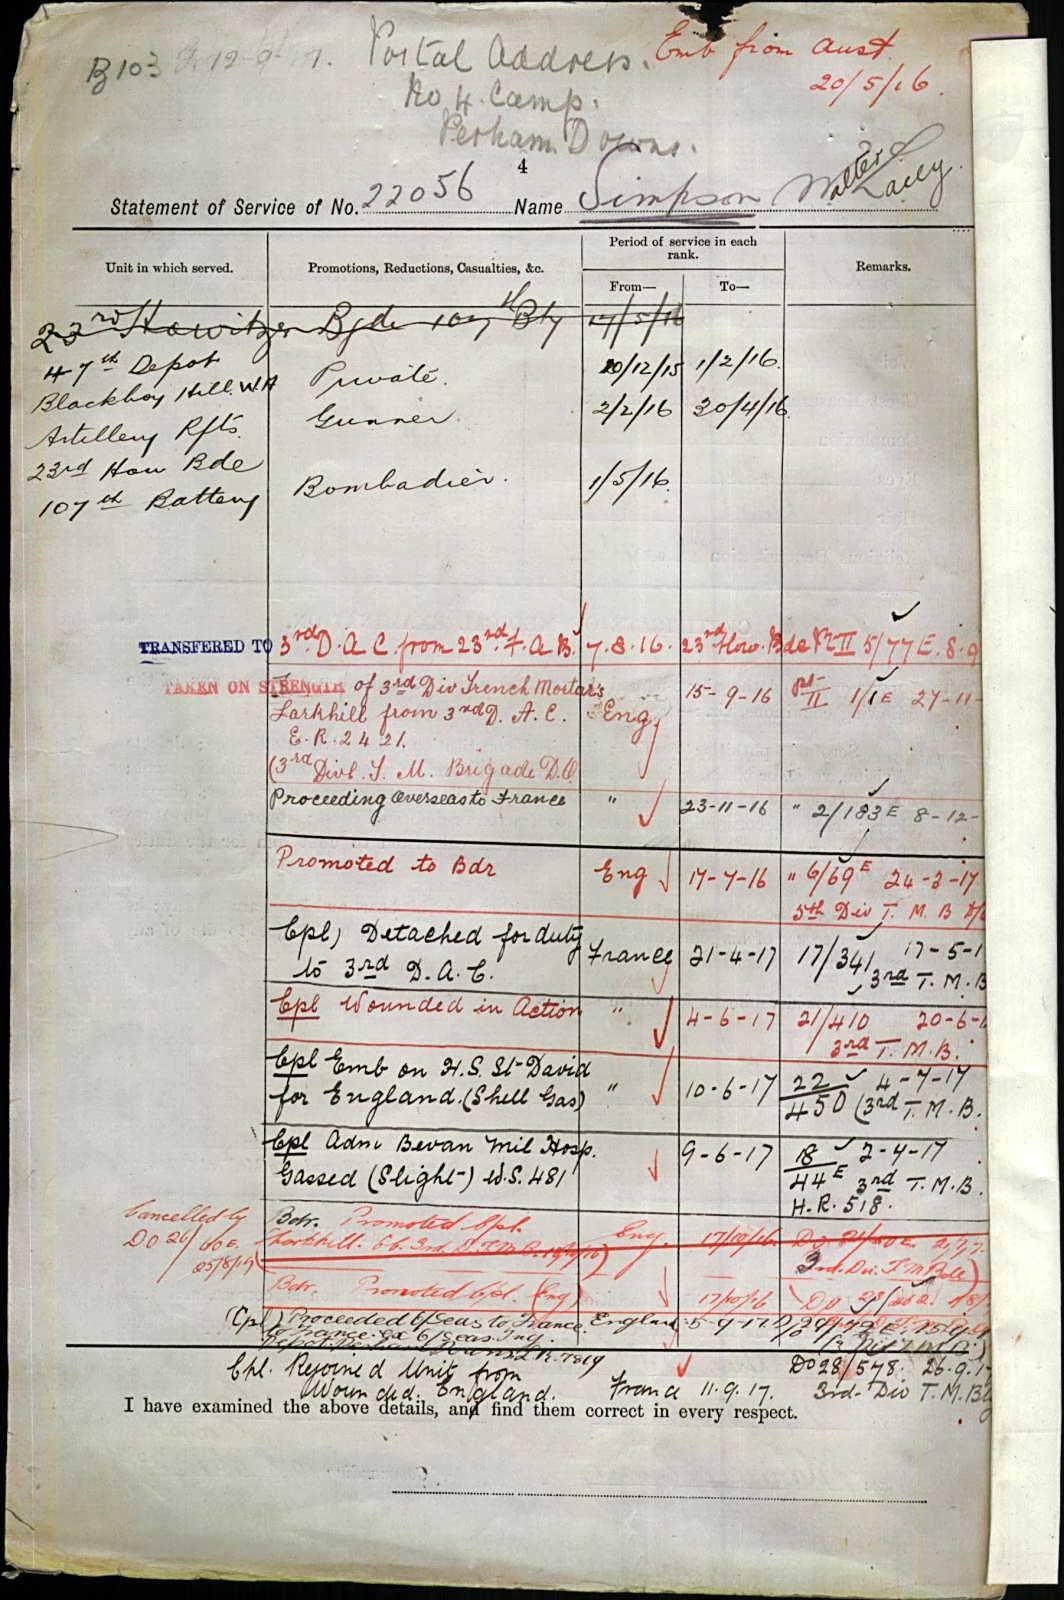 B103
Postal Address.
Emb from Aust
20/5/16.
No 4. Camp.
Perham Downs.
4
Statement of Service of No. 22056 Name Simpson Walter Lacey.
Unit in which served. Promotions, Reductions, Casualties, &c. Period of service in each rank. Remarks.
From— To—
23rd Howitzer Bgde 107th Bty 17/5/16
47th Depot
Blackboy Hill. W.A Private. 20/12/15 1/2/16.
Artillery Rfts. Gunner. 2/2/16 30/4/16.
23rd How Bde
107th Battery Bombadier. 1/5/16.
TRANSFERED TO 3rd. D.A.C. from 23rd. F.A.B. 7.8.16. 23rd How. Bde Pt II 5/77 E. 8.9
TAKEN ON STRENGTH of 3rd Div Trench Mortars 15-9-16 pt- II 1/1E 27-11-
Larkhill from 3rd D.A.C. Eng.
E.R. 2421.
(3rd Divl. T. M. Brigade D.O
Proceeding Overseas to France " 23-11-16 " 2/183E 8-12-
Promoted to Bdr Eng 17-7-16 " 6/69E 24-3-17
5th Div T. M. B
Cpl) Detached for duty France 21-4-17 17/341 17-5-1
to 3rd D.A.C. 3rd T.M.B
Cpl Wounded in Action " 4-6-17 21/410 20-6-1
3rd T.M.B.
Cpl Emb on H.S. St David " 10-6-17 22/450 4-7-17
for England. (Shell Gas) (3rd T.M.B.
Cpl Adm Bevan Mil Hosp. 9-6-17 18/44E 2-4-17
Gassed (Slight) W.S. 481 3rd T.M.B.
H.R. 518.
Cancelled by
DO 26/60E.
25/8/17
Bdr. Promoted Cpl. Eng. 17/10/16.
3rd. Div. T.M Bde)
Bdr. Promoted Cpl. (Eng) 17/10/16
(Cpl) Proceeded O/Seas to France. England 5-9-17
to France. ex O/Seas Trng.
Cpl. Rejoined Unit from DO 28/578. 26.9.17
Wounded. England. France 11.9.17. 3rd- Div T.M.B
I have examined the above details, and find them correct in every respect.